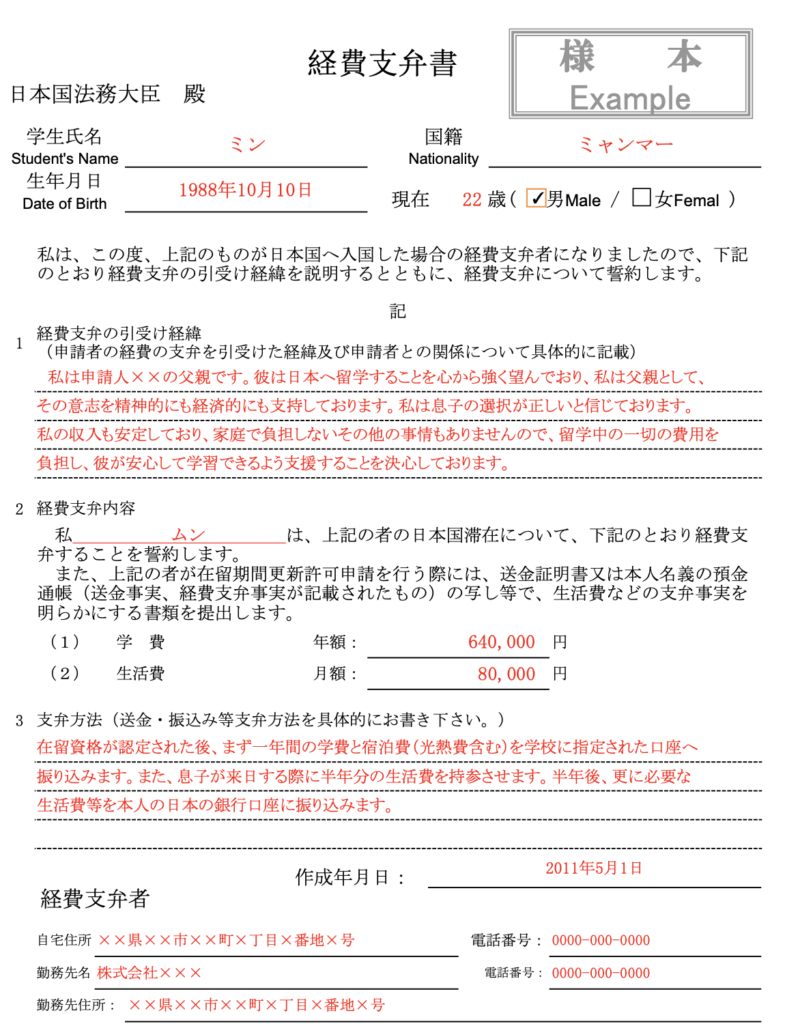 経費支弁書
様 本
Example
日本国法務大臣 殿
学生氏名 ミン 国籍 ミャンマー
Student's Name Nationality
生年月日 1988年10月10日 現在 22 歳( ✓男Male / □女Femal )
Date of Birth
私は、この度、上記のものが日本国へ入国した場合の経費支弁者になりましたので、下記
のとおり経費支弁の引受け経緯を説明するとともに、経費支弁について誓約します。
記
1 経費支弁の引受け経緯
（申請者の経費の支弁を引受けた経緯及び申請者との関係について具体的に記載）
私は申請人××の父親です。彼は日本へ留学することを心から強く望んでおり、私は父親として、
その意志を精神的にも経済的にも支持しております。私は息子の選択が正しいと信じております。
私の収入も安定しており、家庭で負担しないその他の事情もありませんので、留学中の一切の費用を
負担し、彼が安心して学習できるよう支援することを決心しております。
2 経費支弁内容
私 ムン は、上記の者の日本国滞在について、下記のとおり経費支
弁することを誓約します。
また、上記の者が在留期間更新許可申請を行う際には、送金証明書又は本人名義の預金
通帳（送金事実、経費支弁事実が記載されたもの）の写し等で、生活費などの支弁事実を
明らかにする書類を提出します。
（１） 学 費 年額： 640,000 円
（２） 生活費 月額： 80,000 円
3 支弁方法（送金・振込み等支弁方法を具体的にお書き下さい。）
在留資格が認定された後、まず一年間の学費と宿泊費(光熱費含む)を学校に指定された口座へ
振り込みます。また、息子が来日する際に半年分の生活費を持参させます。半年後、更に必要な
生活費等を本人の日本の銀行口座に振り込みます。
作成年月日： 2011年5月1日
経費支弁者
自宅住所 ××県××市××町×丁目×番地×号 電話番号： 0000-000-0000
勤務先名 株式会社××× 電話番号： 0000-000-0000
勤務先住所： ××県××市××町×丁目×番地×号